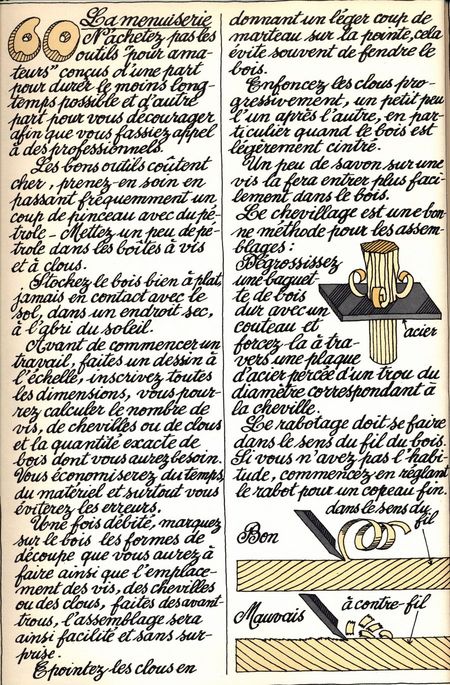 60
La menuiserie
N'achetez pas les
outils "pour ama-
teurs" conçus d'une part
pour durer le moins long-
temps possible et d'autre
part pour vous décourager
afin que vous fassiez appel
à des professionnels.
Les bons outils coûtent
cher, prenez-en soin en
passant fréquemment un
coup de pinceau avec du pé-
trole - Mettez un peu de pé-
trole dans les boîtes à vis
et à clous.
Stockez le bois bien à plat,
jamais en contact avec le
sol, dans un endroit sec,
à l'abri du soleil.
Avant de commencer un
travail, faites un dessin à
l'échelle, inscrivez toutes
les dimensions, vous pour-
rez calculer le nombre de
vis, de chevilles ou de clous
et la quantité exacte de
bois dont vous aurez besoin.
Vous économiserez du temps,
du matériel et surtout vous
éviterez les erreurs.
Une fois débité, marquez
sur le bois les formes de
découpe que vous aurez à
faire ainsi que l'emplace-
ment des vis, des chevilles
ou des clous, faites des avant
trous, l'assemblage sera
ainsi facilité et sans sur-
prise.
Epointez les clous en
donnant un léger coup de
marteau sur la pointe, cela
évite souvent de fendre le
bois.
Enfoncez les clous pro-
gressivement, un petit peu
l'un après l'autre, en par-
ticulier quand le bois est
légèrement cintré.
Un peu de savon sur une
vis la fera entrer plus faci-
lement dans le bois.
Le chevillage est une bon-
ne méthode pour les assem-
blages :
Dégrossissez
une baguet-
te de bois
dur avec un
couteau et
forcez-la à tra-
vers une plaque
d'acier percée d'un trou du
diamètre correspondant à
la cheville.
acier
Le rabotage doit se faire
dans le sens du fil du bois.
Si vous n'avez pas l'habi-
tude, commencez en réglant
le rabot pour un copeau fin.
dans le sens du
fil
Bon
Mauvais
à contre-fil